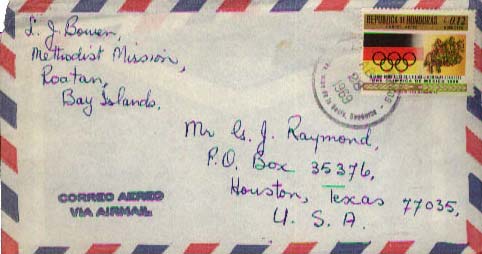 L. J. Bowen,
Methodist Mission,
Roatan,
Bay Islands.
REPUBLICA DE HONDURAS
L 0.12
1969
Mr G. J. Raymond,
P.O. Box 35376,
Houston, Texas 77035,
U. S. A.
CORREO AEREO
VIA AIRMAIL